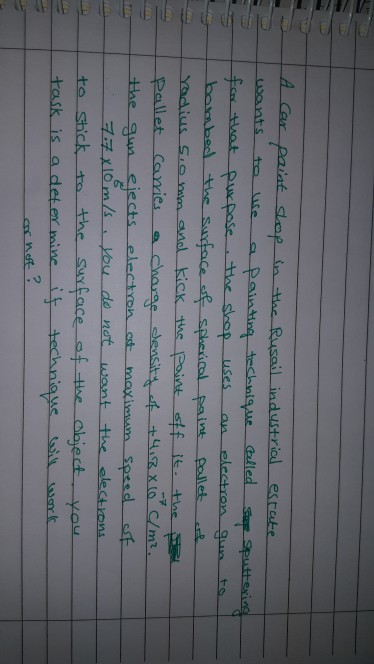 A Car paint shop in the Rusail industrial estate
wants to use a painting technique called sputtering
for that purpose. the shop uses an electron gun to
bombed the surface of spherical paint pallet of
radius 5.0 mm and kick the paint off it. the
pallet carries a charge density of +4.8 x 10⁻⁷ C/m².
the gun ejects electron at maximum speed of
7.7 x 10⁶ m/s. You do not want the electrons
to stick to the surface of the object. You
task is a determine if technique will work
or not?